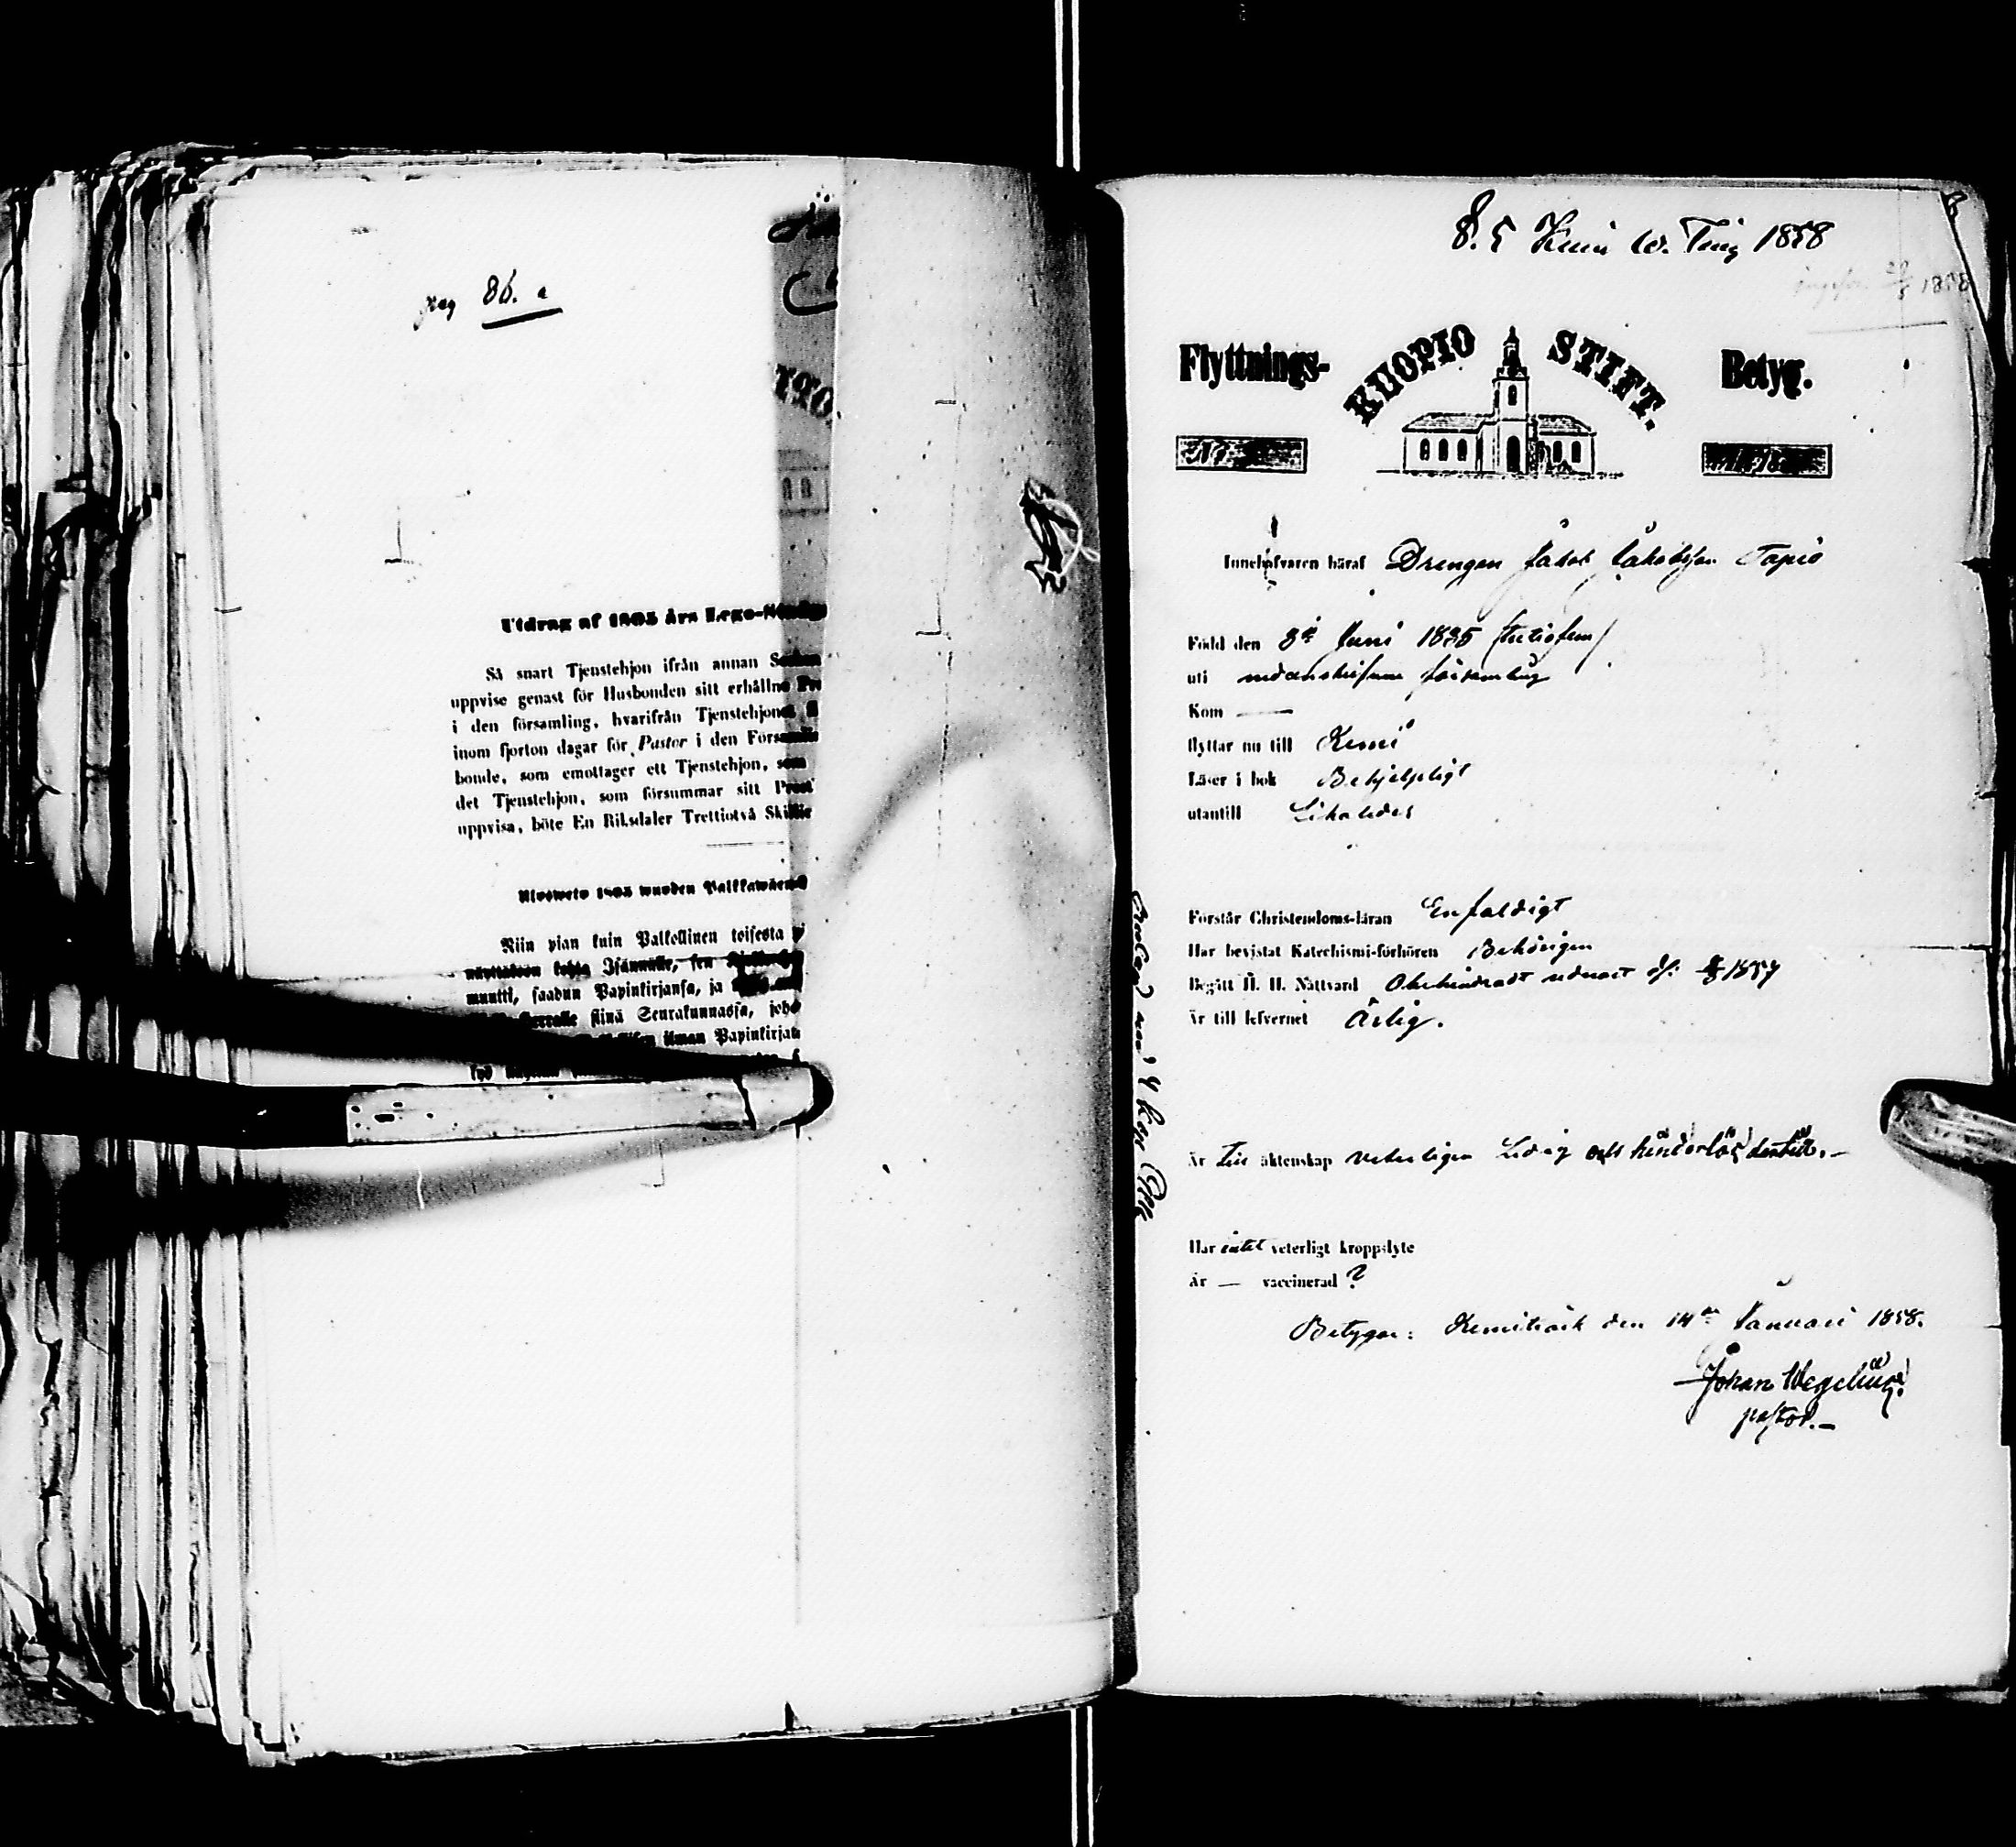 pag 86. a
Utdrag af 1805 års Lego-
Så snart Tjenstehjon ifrån annan
uppvise genast för Husbonden sitt erhållne
i den församling, hvarifrån Tjenstehjonet
inom fjorton dagar för Pastor i den
bonde, som emottager ett Tjenstehjon, som
det Tjenstehjon, som försummar sitt
uppvisa, böte En Riksdaler Trettiotvå
Ulosweto 1805 wuoden
Niin pian kuin Palkollinen toisesta
näyttäköön kohta Isännälle, sen
muutti, saadun Papinkirjansa, ja
siinä Seurakunnassa,
ilman
8. 5 Kemi w. Ting 1858
1858
Flyttnings- KUOPIO STIFT. Betyg.
Innehafvaren häraf Drengen Jakob Jakobsson Tapio
Född den 3die Juni 1835 /trettiofem/
uti nedanskrifne församling
Kom —
flyttar nu till Kemi
Läser i bok Behjelpligt
utantill Likaledes
Förstår Christendoms-läran Enfaldigt
Har bevistat Katechismi-förhören Behörigen
Begått H. H. Nattvard Obehindradt 1857
Är till lefvernet Ärlig.
Är till äktenskap veterligen Ledig och hinderlös
Har intet veterligt kroppslyte
är — vaccinerad ?
Betygar: Kemiträsk den 14de Januari 1858.
Johan Wegelius
pastor.